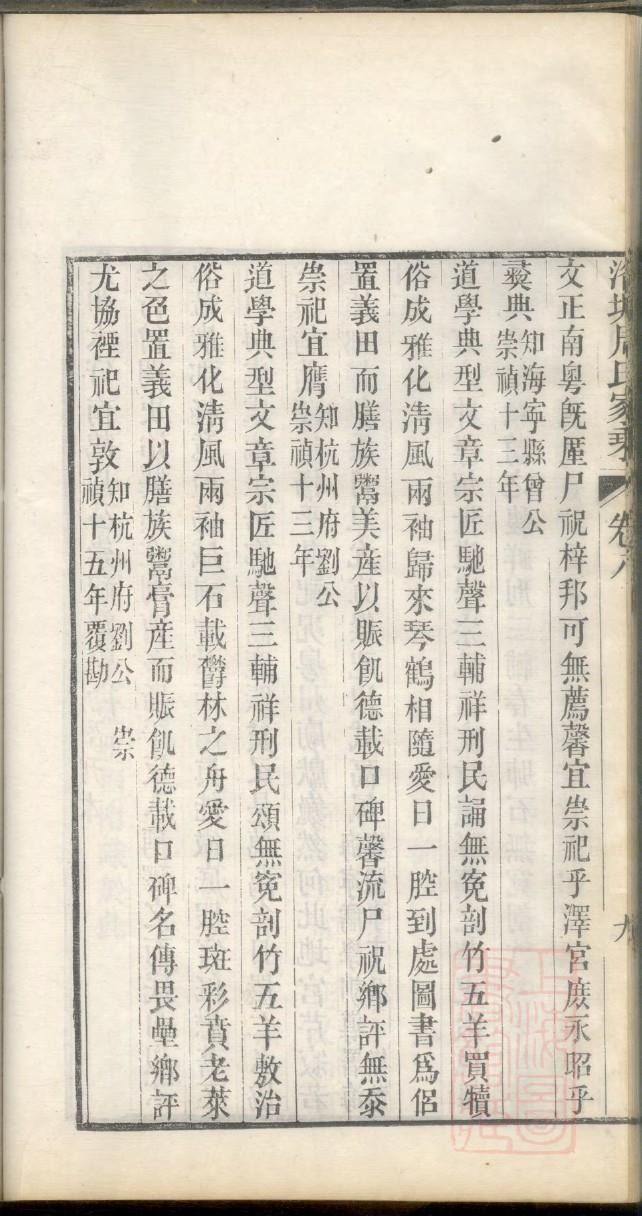 周氏家乘 卷六 九
文正南粵旣厪尸祝梓邦可無薦馨宜崇祀乎澤宮庶永昭乎
彛典知海寧縣曾公崇禎十三年
道學典型文章宗匠馳聲三輔祥刑民誦無寃剖竹五羊買犢
俗成雅化淸風兩袖歸來琴鶴相隨愛日一腔到處圖書爲侶
置義田而膳族鬻美産以賑飢德載口碑馨流尸祝鄉評無忝
崇祀宜膺知杭州府劉公崇禎十三年
道學典型文章宗匠馳聲三輔祥刑民頌無寃剖竹五羊敷治
俗成雅化淸風兩袖巨石載欎林之舟愛日一腔斑彩賁老萊
之色置義田以膳族鬻膏産而賑飢德載口碑名傳畏壘鄉評
尤協禋祀宜敦知杭州府劉公崇禎十五年覆勘